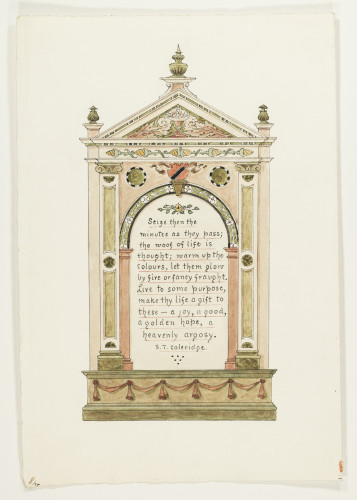 Seize then the
minutes as they pass;
the woof of life is
thought; warm up the
colours, let them glow
by fire or fancy fraught.
Live to some purpose,
make thy life a gift to
these — a joy, a good,
a golden hope, a
heavenly argosy.
S.T. Coleridge.